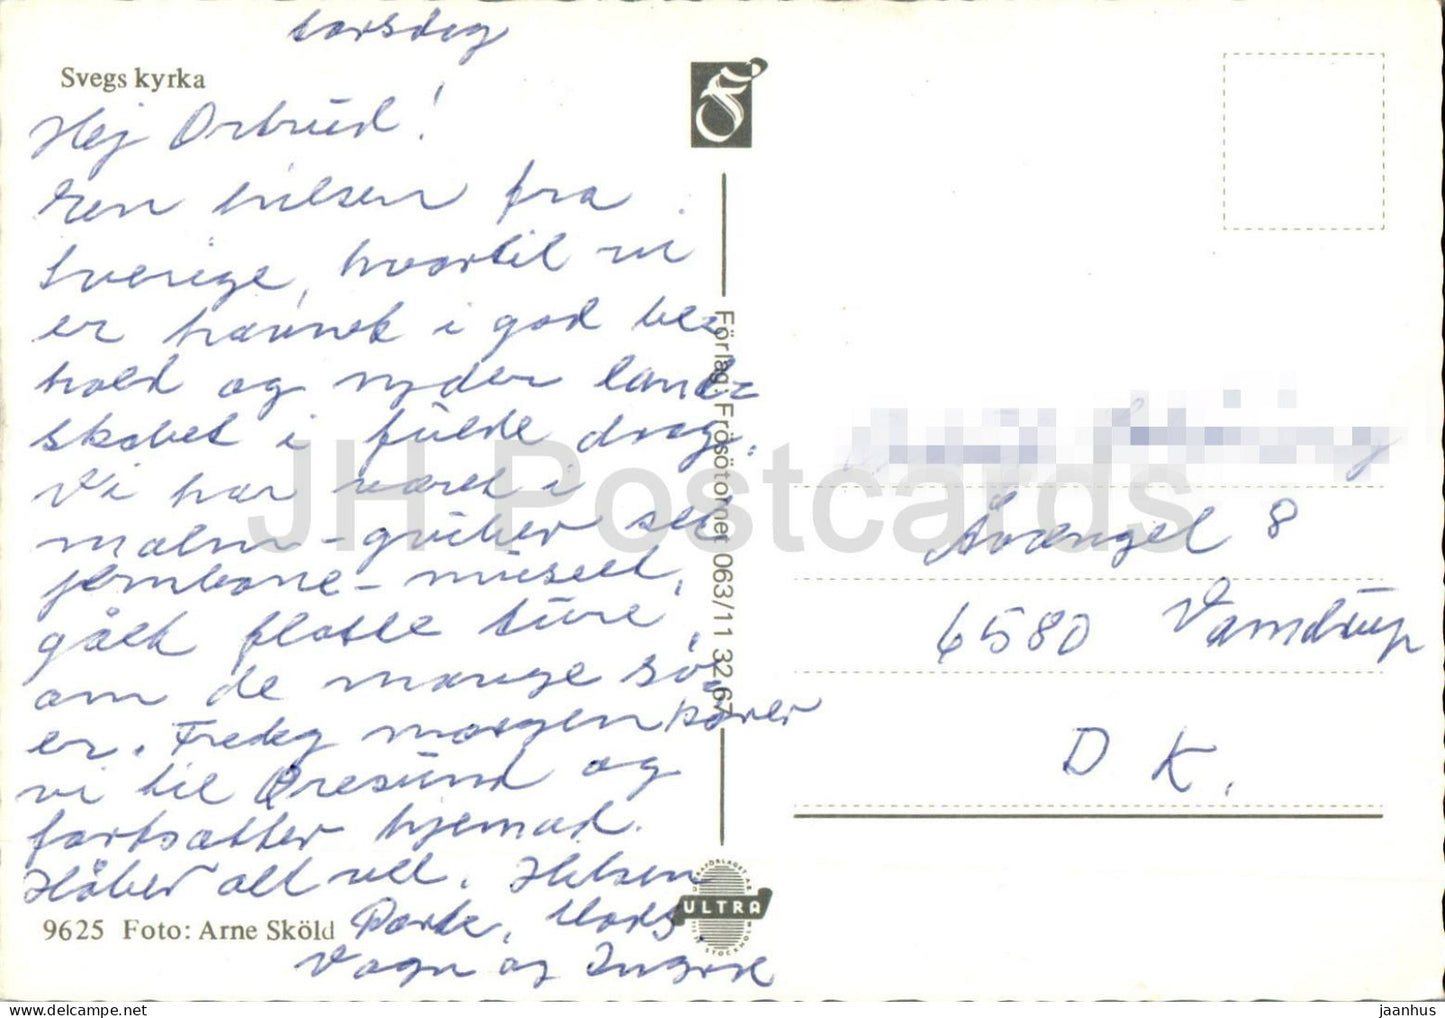 torsdag
Svegs kyrka
Hej Ortrud!
Een hilsen fra
Sverige, hvortil vi
er havnet i god be=
hold og nyder land=
skabet i fulde drag.
Vi har været i
malm-gruber set
jernbane-museet,
gået flotte ture,
om de mange sø
er. Fredag morgen kører
vi til Øresund og
fortsætter hjemad.
Håber alt vel. Hilsen
Dorte, Mads,
Vagn og
9625 Foto: Arne Sköld
Förlag: Frösötornet 063/11 32 67
ULTRA
Åvænget 8
6580 Vamdrup
DK.
JH Postcards
jaanhus